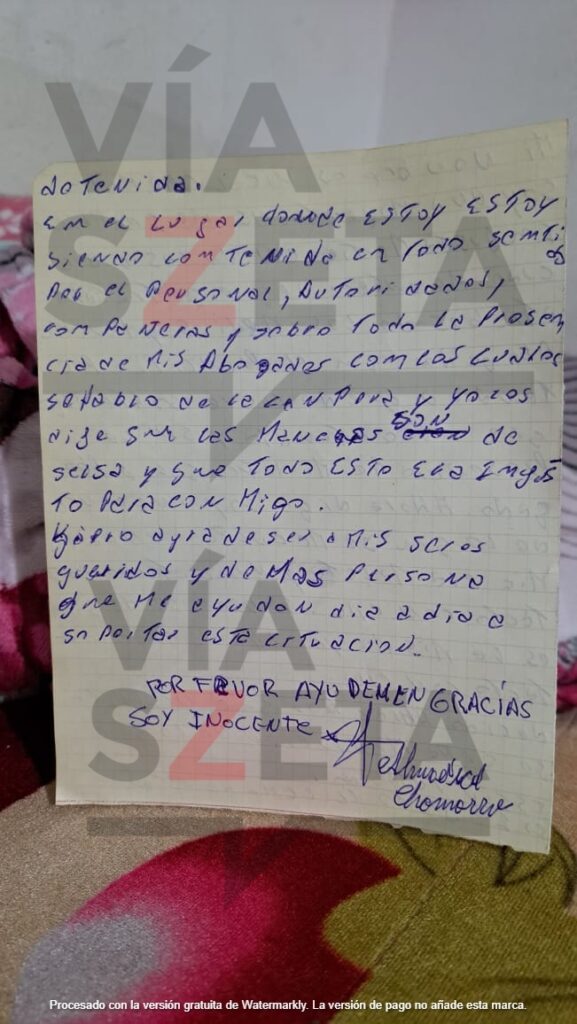 detenida.
En el Lugar donde ESTOY ESTOY
Siendo contenida en todo senti
do
Por el Personal, Autoridades,
compañeras y sobre todo la Presen
cia de Mis Abogadas con las cuales
se
dige que las Manchas SON de
y que Todo ESTO Era Injus
to Para con Migo.
agradeser a Mis seres
queridos y demas Persona
que Me ayudan dia a dia a
soportar esta cituacion.
POR FAVOR AYUDEMEN GRACIAS
SOY INOCENTE
Chamorro
VÍA
SZETA
VÍA
SZETA
Procesado con la versión gratuita de Watermarkly. La versión de pago no añade esta marca.